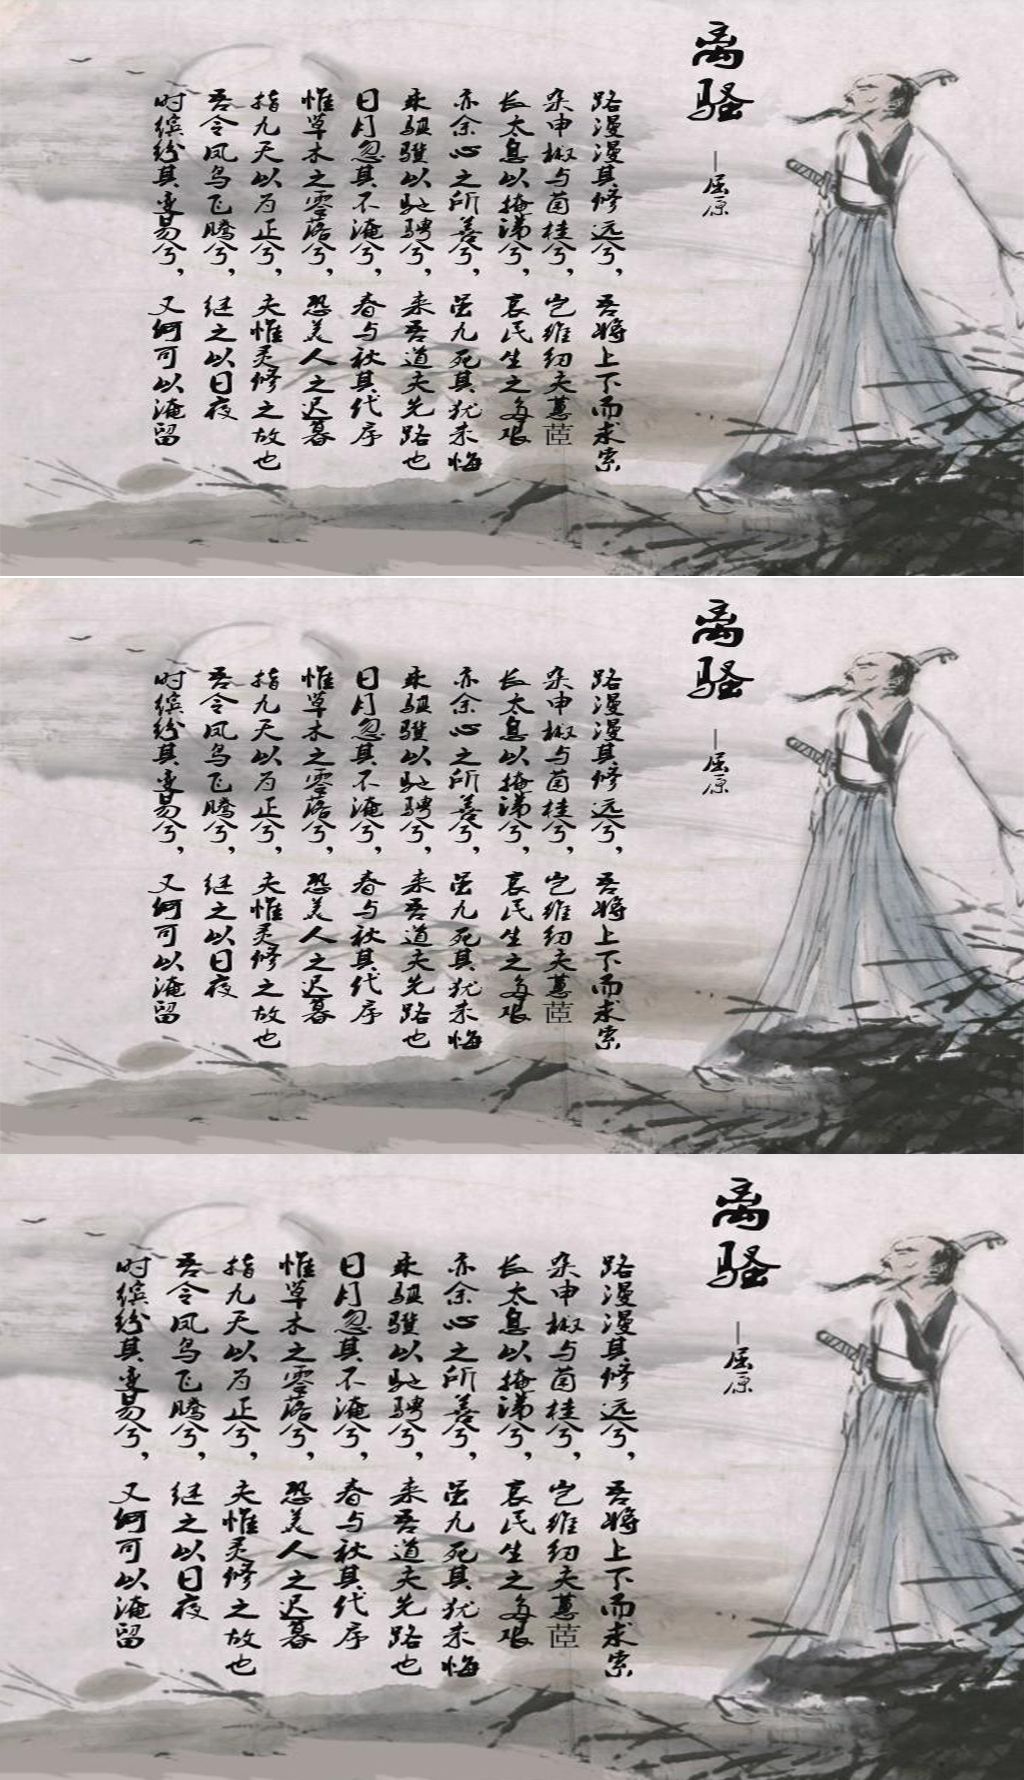 离骚
—屈原
路漫漫其修远兮，吾将上下而求索
杂申椒与菌桂兮，岂维纫夫蕙茝
长太息以掩涕兮，哀民生之多艰
亦余心之所善兮，虽九死其犹未悔
乘骐骥以驰骋兮，来吾道夫先路也
日月忽其不淹兮，春与秋其代序
惟草木之零落兮，恐美人之迟暮
指九天以为正兮，夫惟灵修之故也
吾令凤鸟飞腾兮，继之以日夜
时缤纷其变易兮，又何可以淹留
离骚
—屈原
路漫漫其修远兮，吾将上下而求索
杂申椒与菌桂兮，岂维纫夫蕙茝
长太息以掩涕兮，哀民生之多艰
亦余心之所善兮，虽九死其犹未悔
乘骐骥以驰骋兮，来吾道夫先路也
日月忽其不淹兮，春与秋其代序
惟草木之零落兮，恐美人之迟暮
指九天以为正兮，夫惟灵修之故也
吾令凤鸟飞腾兮，继之以日夜
时缤纷其变易兮，又何可以淹留
离骚
—屈原
路漫漫其修远兮，吾将上下而求索
杂申椒与菌桂兮，岂维纫夫蕙茝
长太息以掩涕兮，哀民生之多艰
亦余心之所善兮，虽九死其犹未悔
乘骐骥以驰骋兮，来吾道夫先路也
日月忽其不淹兮，春与秋其代序
惟草木之零落兮，恐美人之迟暮
指九天以为正兮，夫惟灵修之故也
吾令凤鸟飞腾兮，继之以日夜
时缤纷其变易兮，又何可以淹留